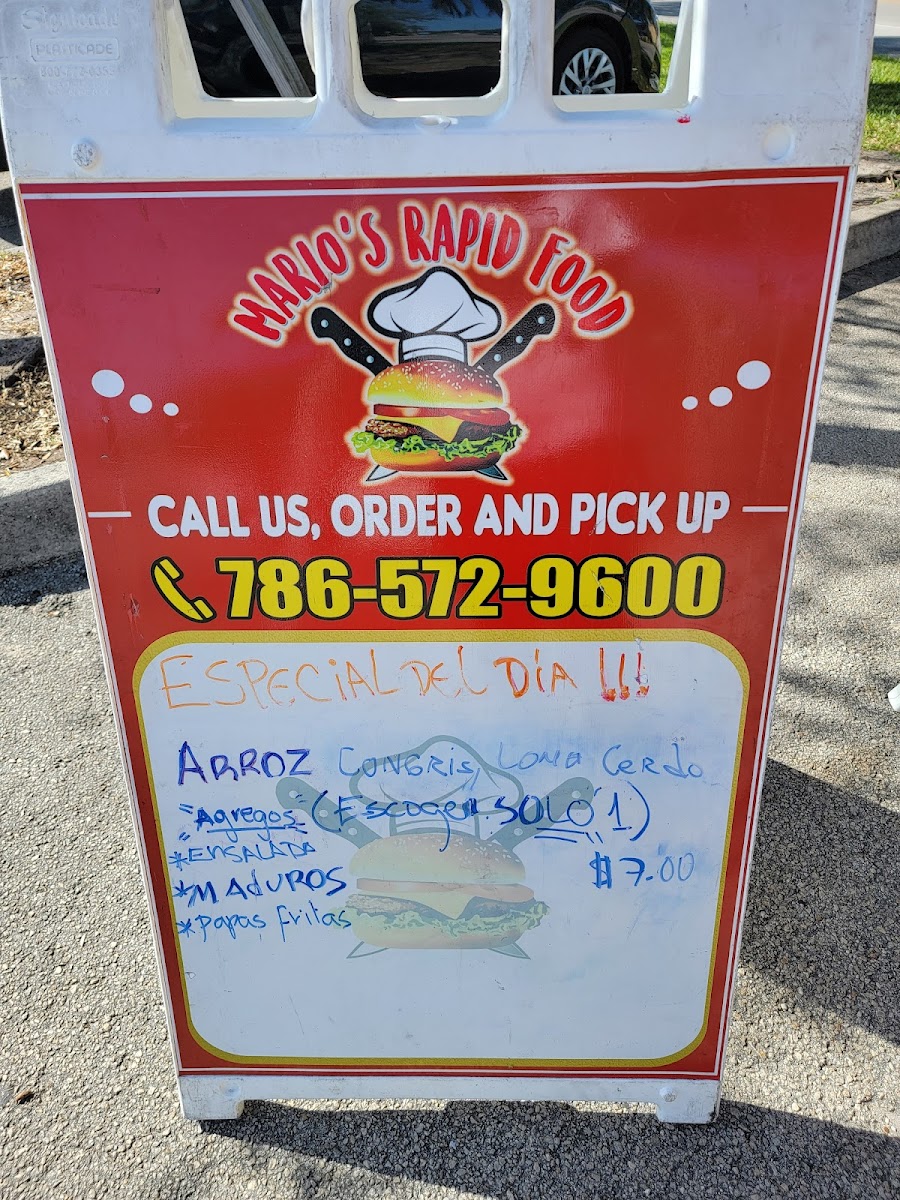 Signicade
PLASTICADE
MARIO'S RAPID FOOD
CALL US, ORDER AND PICK UP
786-572-9600
ESPECIAL DEL DÍA !!!
ARROZ CONGRIS, LOMO CERDO
"Agregos" (Escoger SOLO 1)
*ENSALADA
$7.00
*MADUROS
*Papas fritas